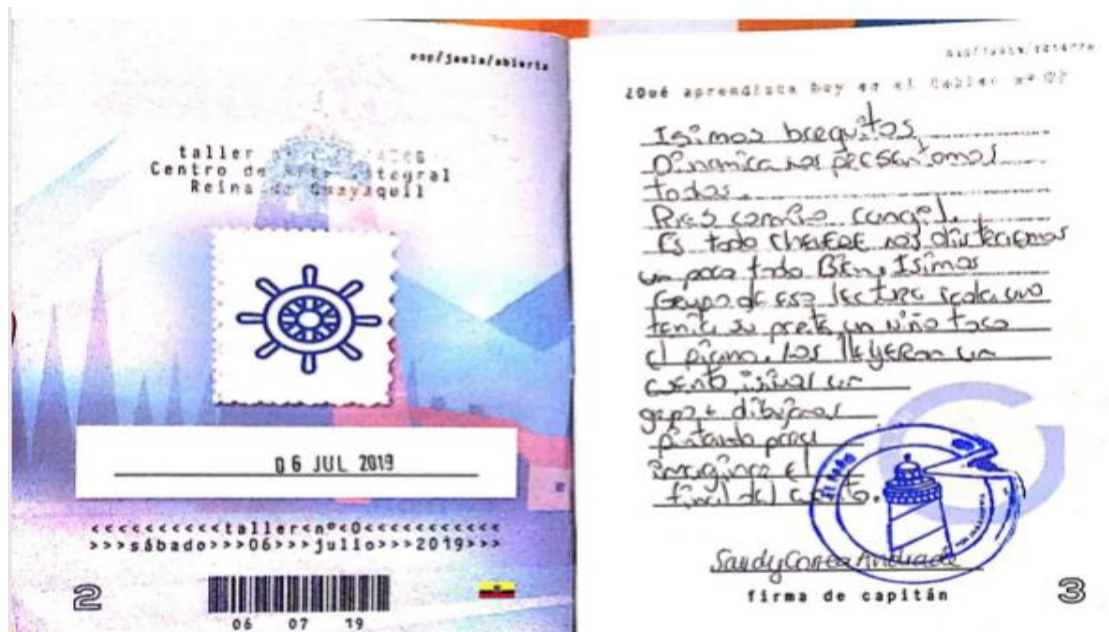 esp/jaula/abierta
taller
Centro de Arte Integral
Reina de Guayaquil
06 JUL 2019
<<<<<<<<<<taller<nº<0<<<<<<<<<<<
>>>sábado>>>06>>>julio>>>2019>>>
06 07 19
2
esp/jaula/abierta
¿Qué aprendiste hoy en el taller nº 0?
Isimos breguitos
Dinamica nos presentamos
todos.
Es todo CHEVERE nos distraemos
un poco todo Bien, Isimos
Grupo de esa lectura cada uno
tenia su un niño toco
el piano. los lleyeron un
un
grupo dibujamos
pintando
imagino el
final del cuento.
Sandy Correa Andrade
firma de capitán
3